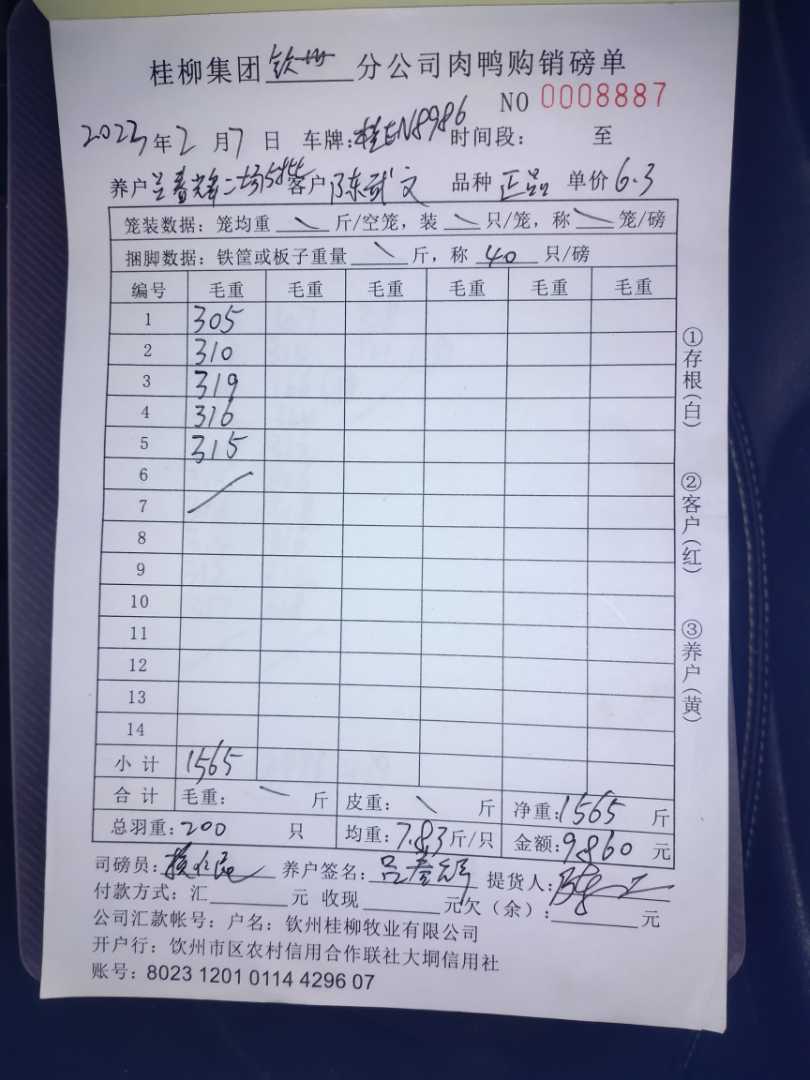 桂柳集团 钦州 分公司肉鸭购销磅单
NO 0008887
2023年2月7日 车牌:桂EN8986 时间段: 至
养户 春 二场 客户 陈武文 品种 正品 单价 6.3
笼装数据: 笼均重 \ 斤/空笼, 装 \ 只/笼, 称 \ 笼/磅
捆脚数据: 铁筐或板子重量 \ 斤, 称 40 只/磅
编号 毛重 毛重 毛重 毛重 毛重 毛重
1 305
2 310
3 319
4 316
5 315
6
7
8
9
10
11
12
13
14
小计 1565
合计 毛重: \ 斤 皮重: \ 斤 净重:1565 斤
总羽重:200 只 均重:7.83斤/只 金额:9860 元
司磅员: 养户签名: 提货人:
付款方式: 汇 元 收现 元欠(余): 元
公司汇款帐号: 户名: 钦州桂柳牧业有限公司
开户行: 钦州市区农村信用合作联社大垌信用社
账号: 8023 1201 0114 4296 07
①存根(白)
②客户(红)
③养户(黄)